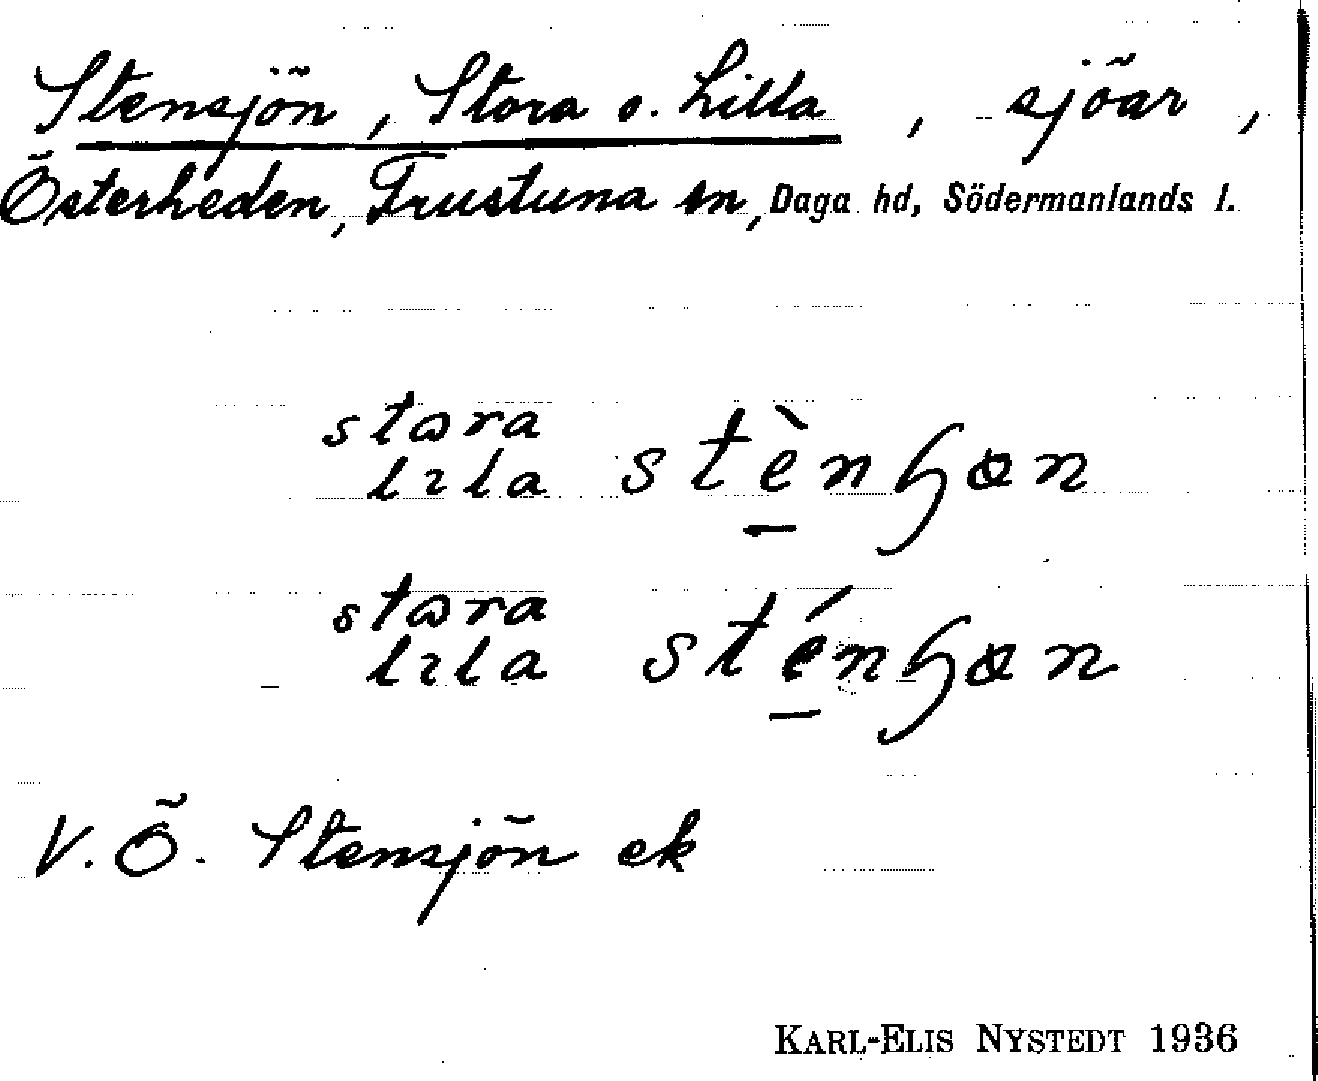 Stensjön, Stora o. Lilla, sjöar,
Österheden, Frustuna sn, Daga hd, Södermanlands l.
stωra
lɪla stènꞕɷn
stωra
lɪla sténꞕɷn
V. Ö. Stensjön ek
KARL-ELIS NYSTEDT 1936